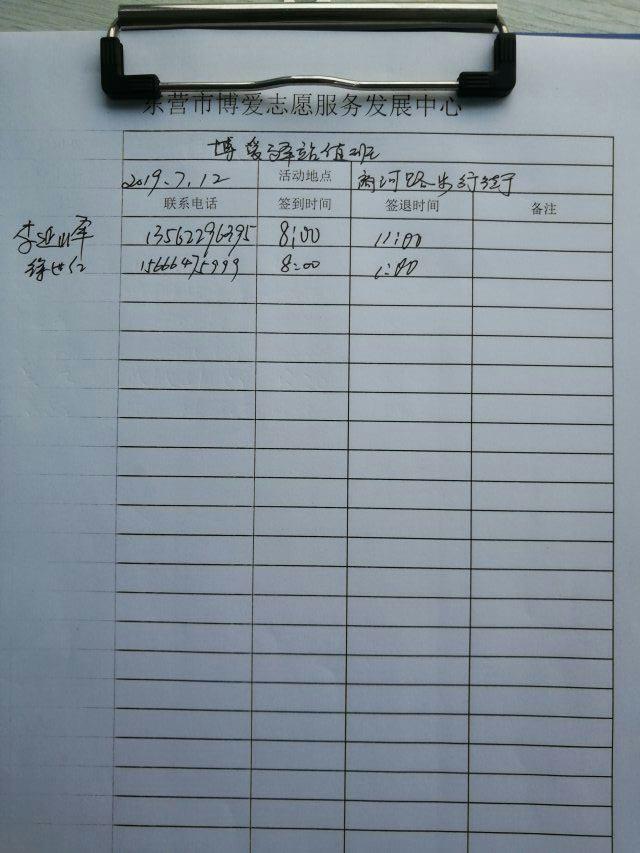 东营市博爱志愿服务发展中心
博爱驿站值班
2019.7.12 活动地点 两河路步行街
联系电话 签到时间 签退时间 备注
13562296395 8:00 11:00
徐世仁 15666475999 8:00 11:00